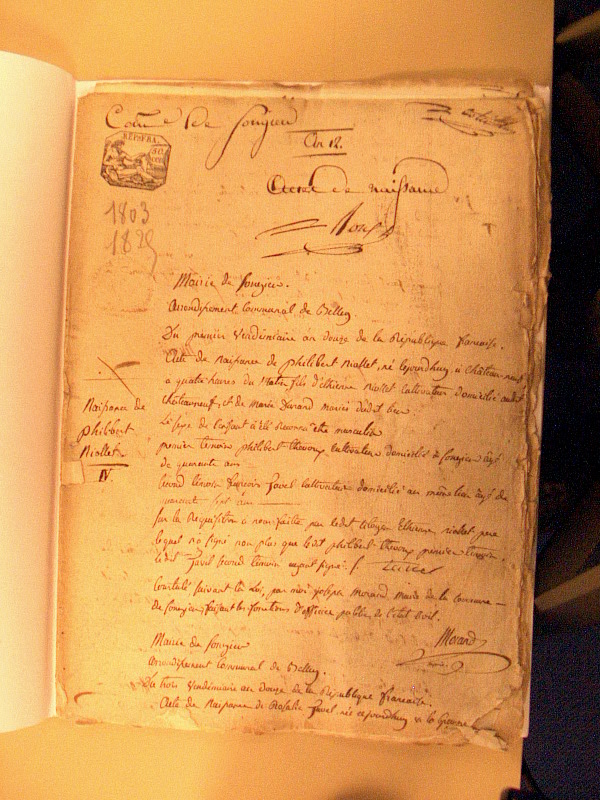 Com.e de Songieu
An 12.
REP. FRA.
Actes de naissance
1803
1825
Mairie de Songieu.
Arrondissement Communal de Belley
Du premier Vendémiaire an douze de la République francaise.
Acte de Naissance de philibert Niollet, né lejourdhuy à châteauneuf
a quatre heures du Matin fils d'Ethienne Niollet Cultivateur domicilié audit
châteauneuf, et de Marie Durand mariés dudit lieu.
Le sexe de l'enfant à été reconnu etre masculin
premier témoin philibert thevoux cultivateur domicilié à Songieu agé
de quarante ans
second témoin françois Javel Cultivateur domicilié au même lieu agé de
Sur la Requisition a nous faitte, par ledit Citoyen Ethienne niollet pere
lequel n'a signé non plus que ledit philibert thevoux premier temoin.
ledit Javel second temoin ayant signé.
Constaté suivant la Loi, par moi joseph Morand maire de la commune
de Songieu, faisant les fonctions d'officier public de l'état civil.
Morand
Naissance de
philibert
Niollet
IV.
Mairie de Songieu
arrondissement Communal de Belley
Du trois Vendémiaire an douze de la République francaise.
Acte de Naissance de Rosalie Javel née